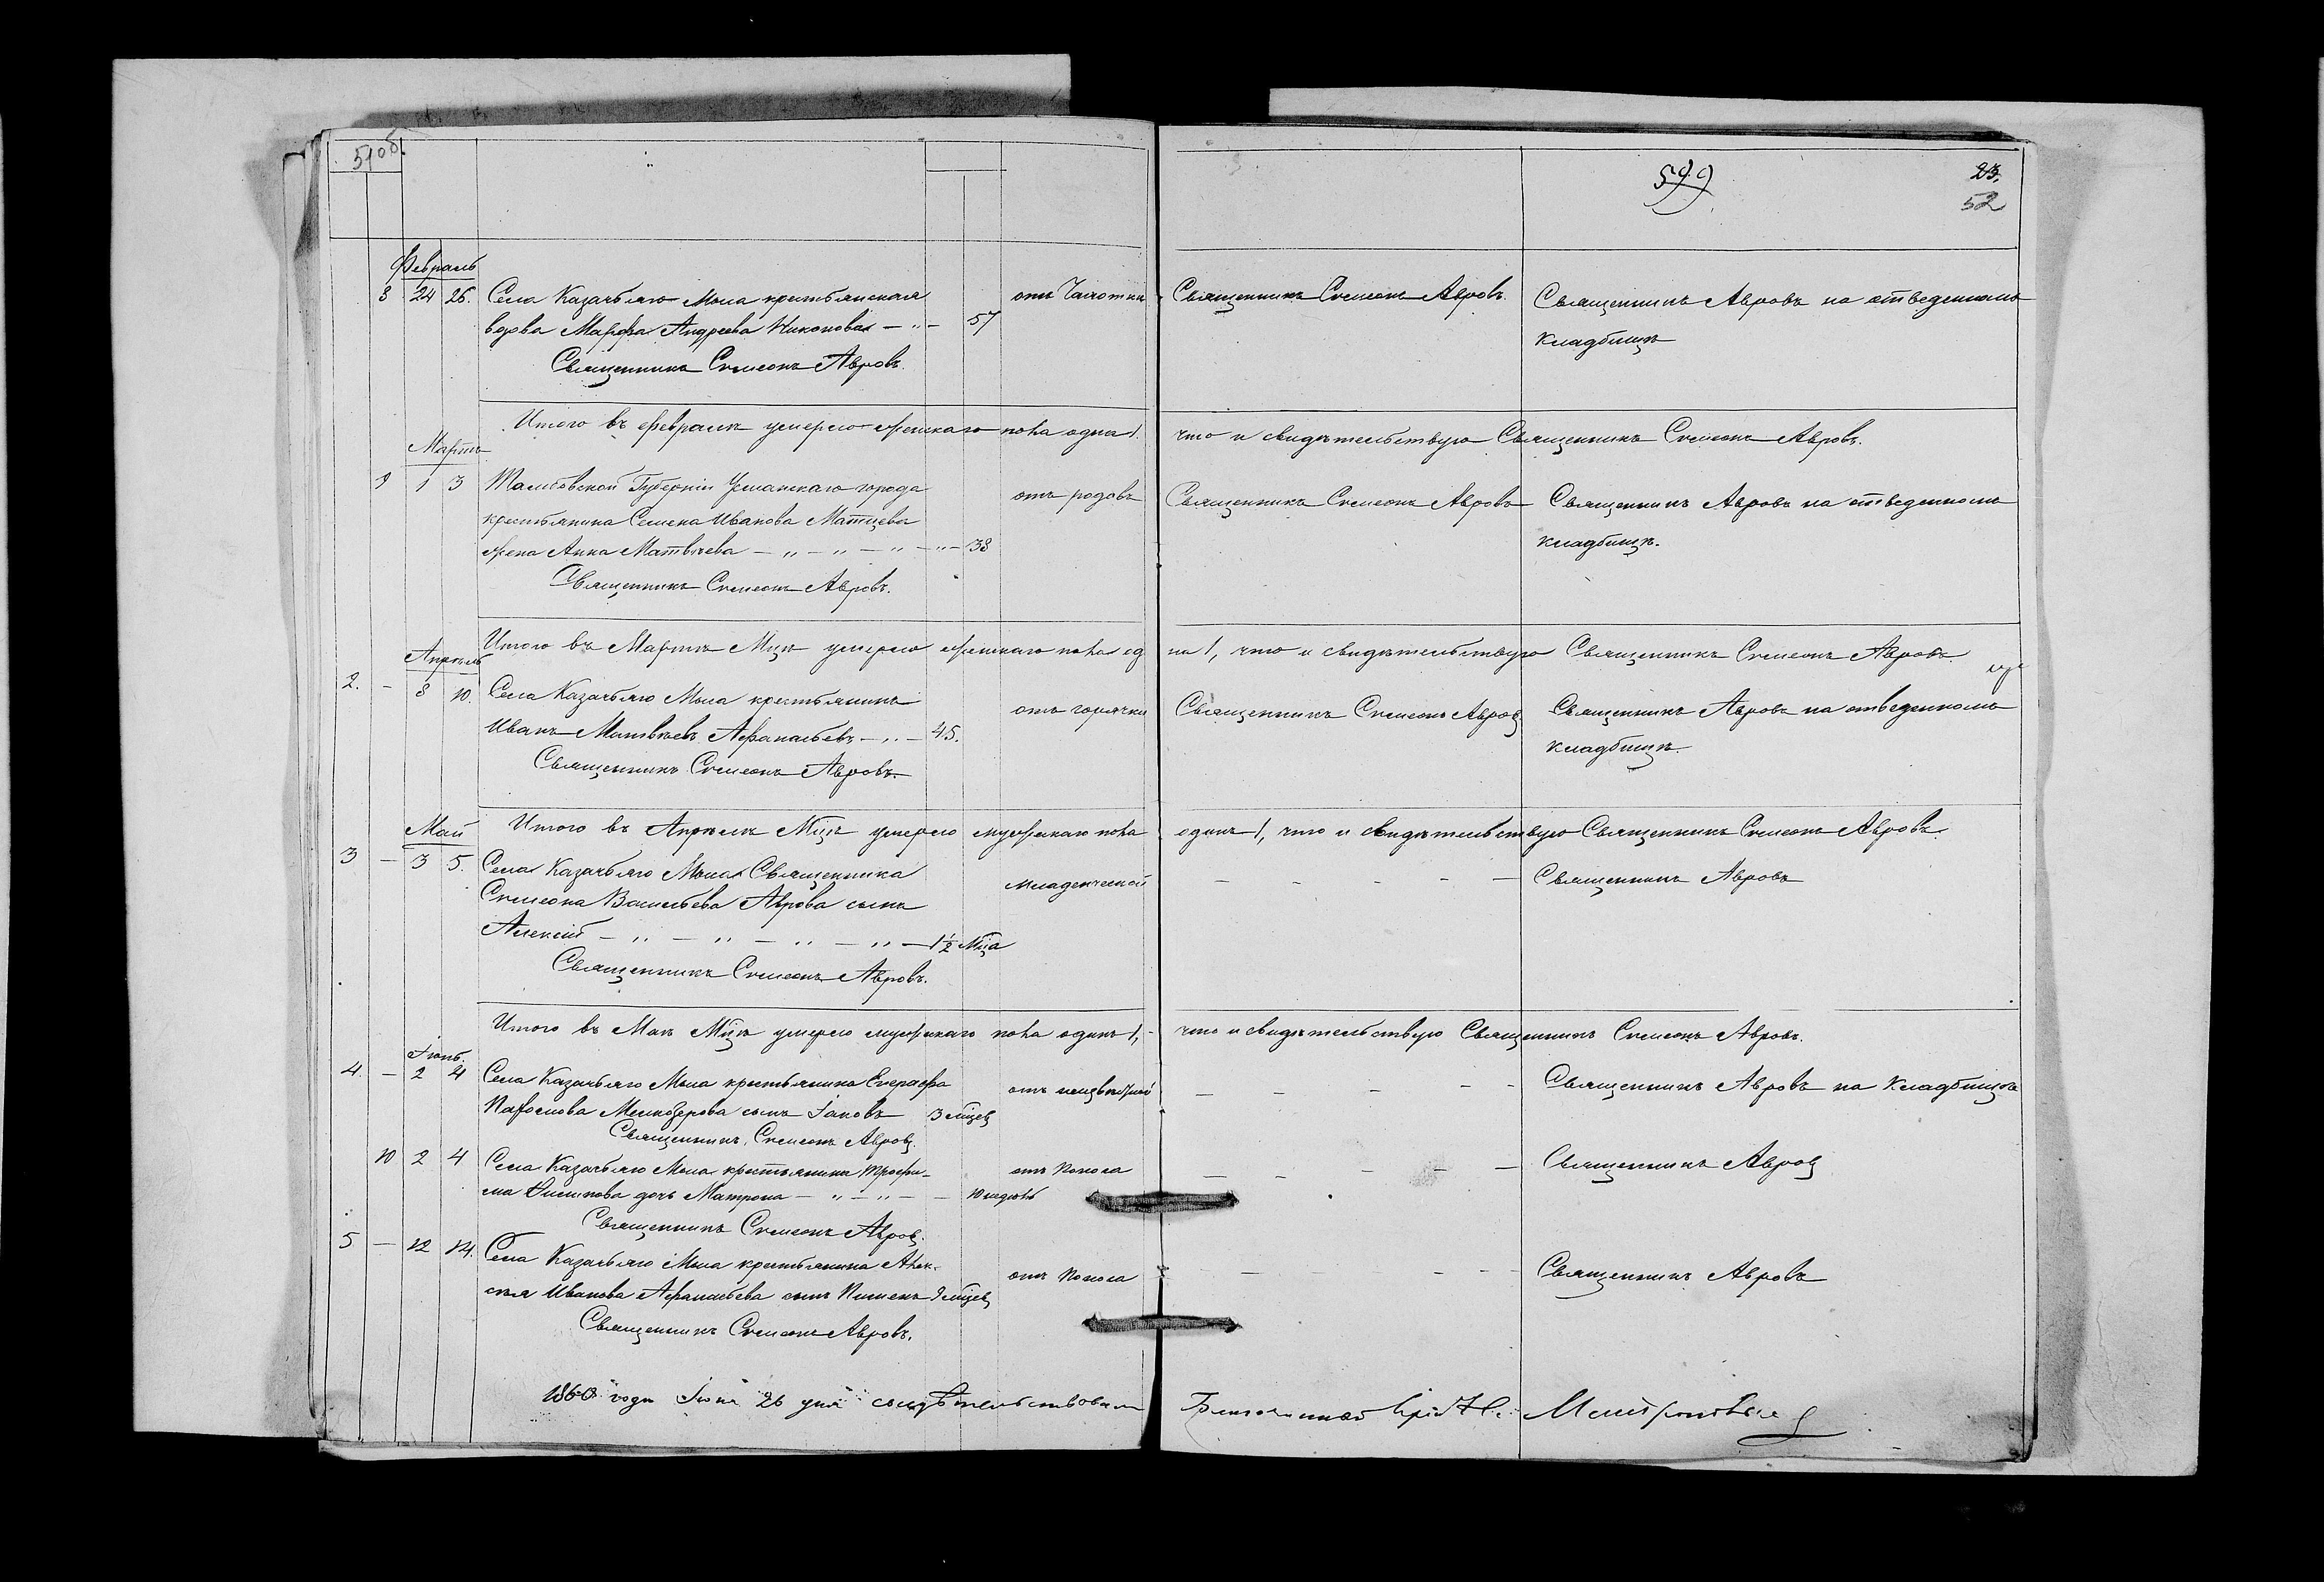 51об.
599
23.
52
Февраль
8 24 26. Села Казачьяго Мыса крестьянская отъ Чахотки Священникъ Симеонъ Авровъ. Священникъ Авровъ на отведенномъ
вдова Марфа Андреева Никонова — „ — 57 кладбищѣ
Священникъ Симеонъ Авровъ.
Итого въ февралѣ умерло женскаго пола одна 1. что и свидѣтельствую Священникъ Симеонъ Авровъ.
Мартъ
9 1 3 Тамбовской Губерніи Усманскаго города отъ родовъ Священникъ Симеонъ Авровъ Священникъ Авровъ на отведенномъ
крестьянина Семена Иванова кладбищѣ.
жена Анна Матвѣева — „ — „ — „ — „ — 38
Священникъ Симеонъ Авровъ.
Итого въ Мартѣ Мцѣ умерло женскаго пола одна 1, что и свидѣтельствую Священникъ Симеонъ Авровъ.
Апрѣль
2. — 8 10. Села Казачьяго Мыса крестьянинъ отъ горячки Священникъ Симеонъ Авровъ Священникъ Авровъ на отведенномъ
Иванъ Матвѣевъ Афанасьевъ — „ — 45. кладбищѣ.
Священникъ Симеонъ Авровъ.
Май
Итого въ Апрѣлѣ Мцѣ умерло мужескаго пола одинъ 1, что и свидѣтельствую Священникъ Симеонъ Авровъ.
3 — 3 5. Села Казачьяго Мыса Священника младенческой — — — — — Священникъ Авровъ
Симеона Васильева Аврова сынъ
Алексій — „ — „ — „ — „ — 1½ Мца
Священникъ Симеонъ Авровъ.
Итого въ Маѣ Мцѣ умерло мужескаго пола одинъ 1, — что и свидѣтельствую Священникъ Симеонъ Авровъ.
Іюнь.
4. — 2 4 Села Казачьяго Мыса крестьянина отъ — — — — Священникъ Авровъ на кладбищѣ
сынъ Іаковъ 3 мцев
Священникъ Симеонъ Авровъ.
10 2 4 Села Казачьяго Мыса крестьянина Трофи- отъ поноса — — — — — Священникъ Авровъ
ма дочь Матрона — „ — „ — — 10 недѣль
Священникъ Симеонъ Авровъ.
5 — 12 14. Села Казачьяго Мыса крестьянина Алек- отъ поноса — — — Священникъ Авровъ
сѣя Иванова Афанасьева сынъ Пименъ 9 мцев
Священникъ Симеонъ Авровъ.
1860 года Іюня 26 дня свидѣтельствовалъ Благочинный